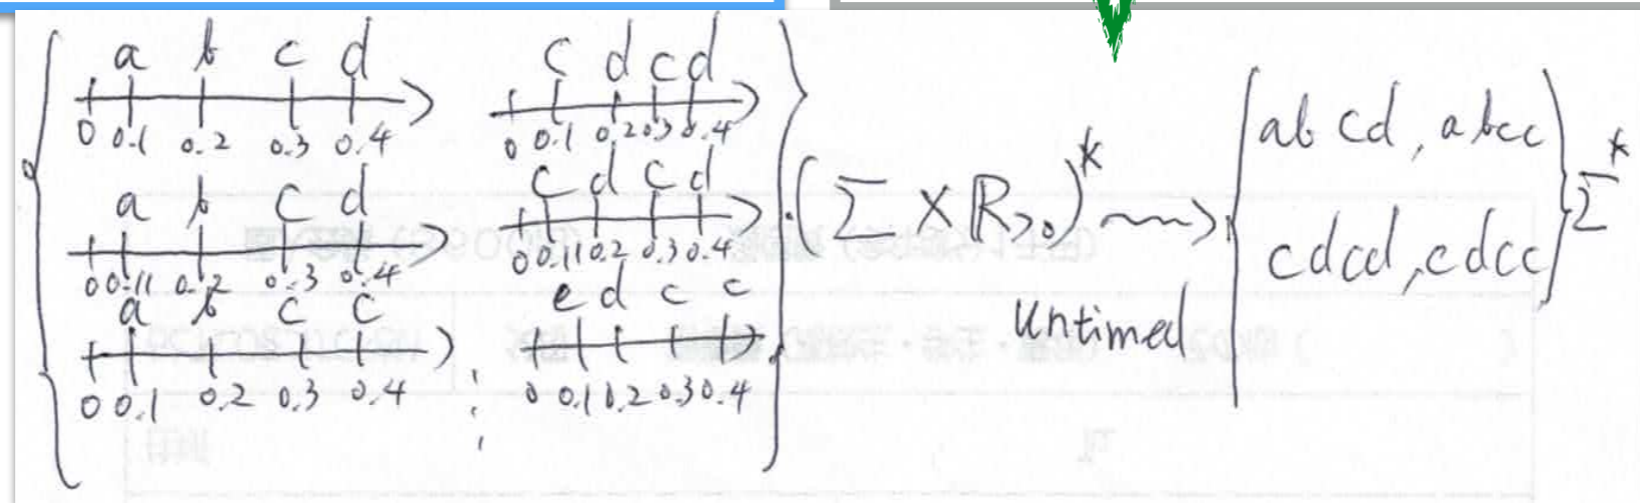 a b c d
0 0.1 0.2 0.3 0.4
c d c d
0 0.1 0.2 0.3 0.4
a b c d
0 0.11 0.2 0.3 0.4
c d c d
0 0.11 0.2 0.3 0.4
a b c c
0 0.1 0.2 0.3 0.4
e d c c
0 0.1 0.2 0.3 0.4
(Σ × R≥0)*
untimed
{abcd, abcc
cdcd, edcc} Σ*